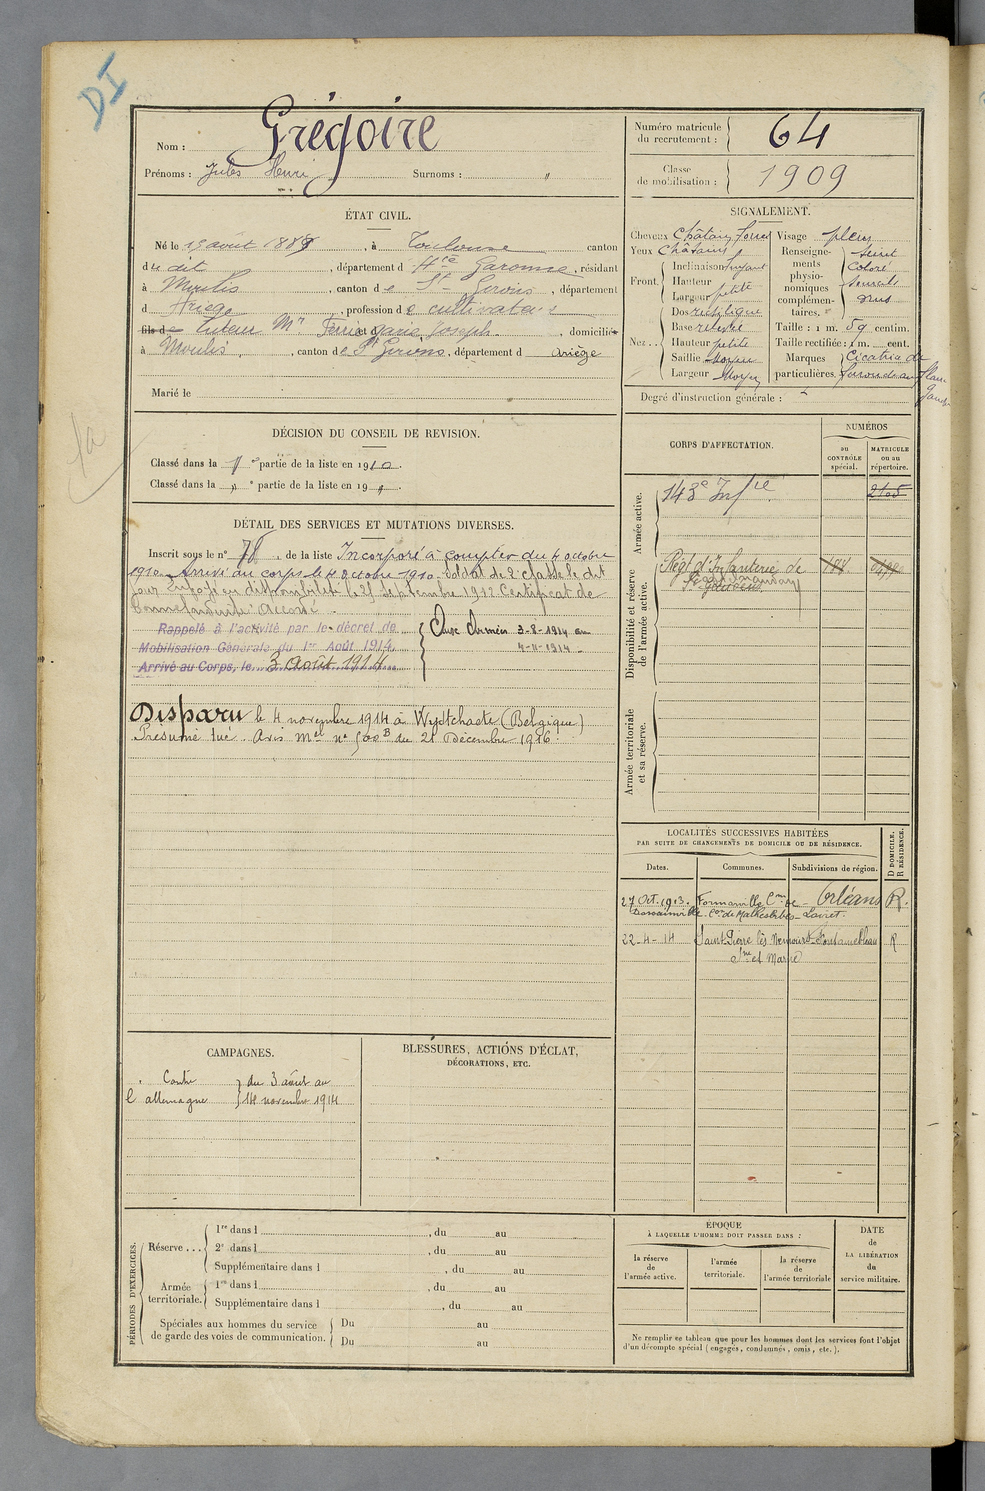 DI
Nom : Grégoire
Prénoms : Jules Henri Surnoms : "
Numéro matricule du recrutement : 64
Classe de mobilisation : 1909
ÉTAT CIVIL.
Né le 19 août 1889, à Toulouse canton
du dit, département d Hte Garonne, résidant
à Moulis, canton de St Girons, département
d Ariège, profession de cultivateur
fils de Tuteur Mr Ferrie et d Marie Joseph, domiciliés
à Moulis, canton de St Girons, département d Ariège
Marié le
SIGNALEMENT.
Cheveux Châtain foncé Visage plein
Yeux Châtains
Front. Inclinaison fuyant
Hauteur
Largeur petite
Nez Dos rectiligne
Base relevée
Hauteur petite
Saillie Moyen
Largeur Moyen
Renseignements physionomiques complémentaires.
Coloré
Taille : 1 m. 59 centim.
Taille rectifiée : 1 m. cent.
Marques particulières. Cicatrice de
Degré d'instruction générale :
DÉCISION DU CONSEIL DE REVISION.
Classé dans la 1 e partie de la liste en 1910.
Classé dans la " e partie de la liste en 19 ".
DÉTAIL DES SERVICES ET MUTATIONS DIVERSES.
Inscrit sous le n° 78 de la liste Incorporé à compter du 4 octobre
1910. Arrivé au corps le 4 octobre 1910. Soldat de 2e classe le dit
jour. Envoyé en disponibilité le 25 septembre 1912. Certificat de
bonne conduite Accordé.
Rappelé à l'activité par le décret de
Mobilisation Générale du 1er Août 1914
Arrivé au Corps, le 3 Août 1914
Aux Armées 3-8-1914 au
4-11-1914
Disparu le 4 novembre 1914 à Wytschaete (Belgique)
Présumé tué. Avis Mel n° 500 B du 21 Décembre 1916.
CORPS D'AFFECTATION.
NUMÉROS
au CONTRÔLE spécial.
MATRICULE ou au répertoire.
Armée active.
143e Infie
2105
Disponibilité et réserve de l'armée active.
Régt d'Infanterie de
St Gaudens
Armée territoriale et sa réserve.
LOCALITÉS SUCCESSIVES HABITÉES
PAR SUITE DE CHANGEMENTS DE DOMICILE OU DE RÉSIDENCE.
D DOMICILE. R RÉSIDENCE.
Dates. Communes. Subdivisions de région.
27 Oct. 1913. Cne de Orléans R.
Con de Malesherbes - Loiret
22-4-14 Saint Pierre lès Nemours Fontainebleau R
Sne et Marne
CAMPAGNES.
Contre l'allemagne du 3 août au
14 novembre 1914
BLESSURES, ACTIONS D'ÉCLAT,
DÉCORATIONS, ETC.
PÉRIODES D'EXERCICES.
Réserve ... 1re dans l , du au
2e dans l , du au
Supplémentaire dans l , du au
Armée territoriale. 1re dans l , du au
Supplémentaire dans l , du au
Spéciales aux hommes du service de garde des voies de communication. Du au
Du au
ÉPOQUE
À LAQUELLE L'HOMME DOIT PASSER DANS :
la réserve de l'armée active.
l'armée territoriale.
la réserve de l'armée territoriale
DATE de LA LIBÉRATION du service militaire.
Ne remplir ce tableau que pour les hommes dont les services font l'objet
d'un décompte spécial (engagés, condamnés, omis, etc.).